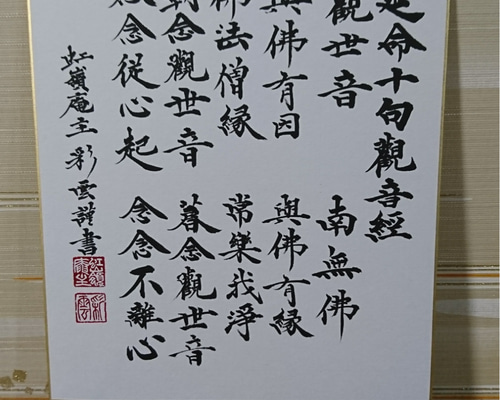 延命十句觀音經
觀世音 南無佛
與佛有因 與佛有縁
佛法僧縁 常樂我淨
朝念觀世音 暮念觀世音
念念從心起 念念不離心
虹嶺庵主彩雲謹書
彩雲